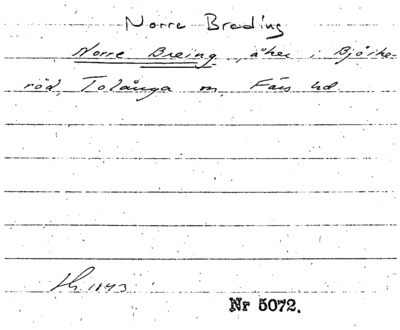 Norre Breding
Norre Breing, åker i Björke-
röd, Tolånga sn, Färs hd.
1843
Nr 5072.